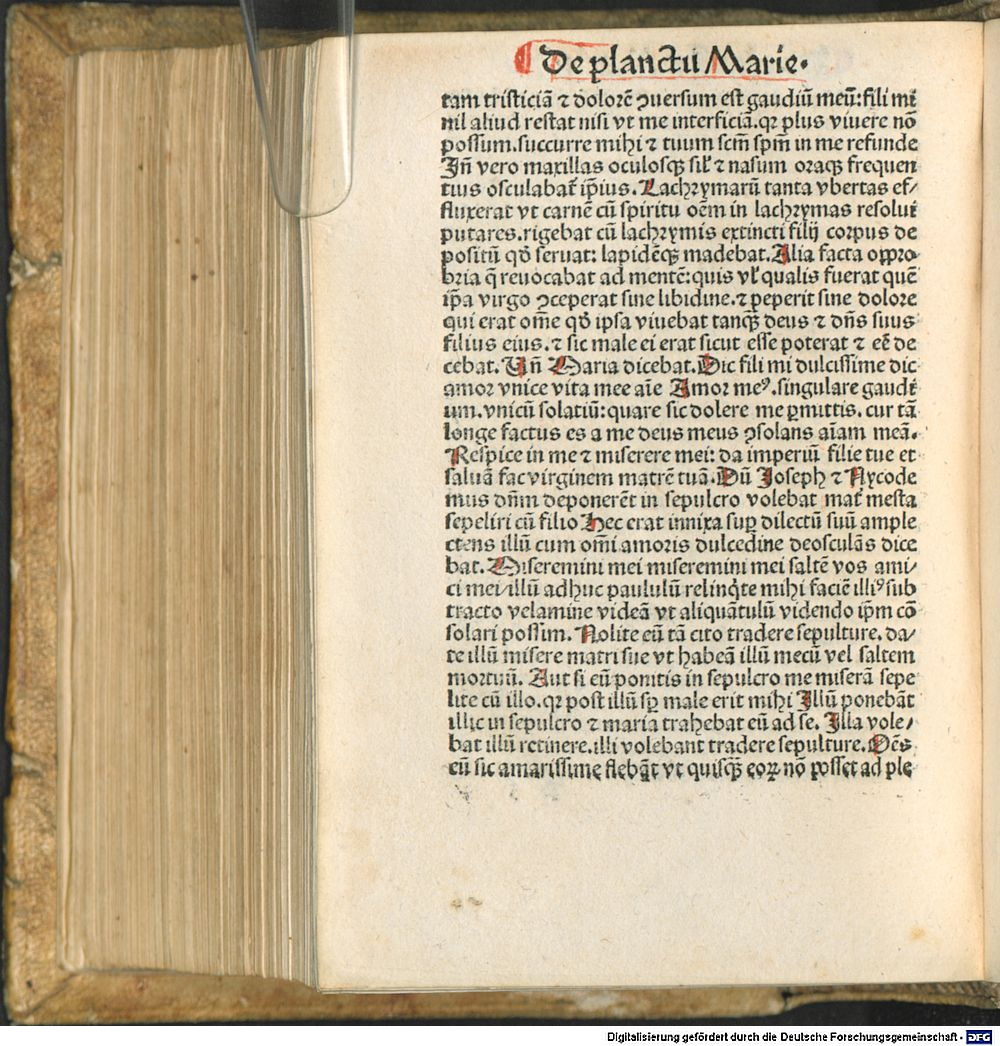 ¶ De planctu Marie.
tam tristiciā ⁊ dolorē ꝯuersum est gaudiū meū: fili mi
nil aliud restat nisi vt me interficiā. qꝛ plus viuere nō
possum. succurre mihi ⁊ tuum scm̄ spm̄ in me refunde
Jn̄ vero maxillas oculosqꝫ sil̄ ⁊ nasum oraqꝫ frequen
tius osculabat̄ ip̄ius. Lachrymarū tanta vbertas ef⸗
fluxerat vt carnē cū spiritu oēm in lachrymas resolui
putares. rigebat cū lachrymis extincti filij corpus de
positū qđ seruat: lapidēqꝫ madebat. Alia facta oppro⸗
bria q̄ reuocabat ad mentē: quis vl̄ qualis fuerat quē
ip̄a virgo ꝯceperat sine libidine. ⁊ peperit sine dolore
qui erat om̄e qđ ipsa viuebat tanqꝫ deus ⁊ dn̄s suus
filius eius. ⁊ sic male ei erat sicut esse poterat ⁊ eē de
cebat. Vn̄ Maria dicebat. Dic fili mi dulcissime dic
amor vnice vita mee aīe Amor meꝰ. singulare gaudi
um. vnicū solatiū: quare sic dolere me ꝑmittis. cur tā
longe factus es a me deus meus ꝯsolans aīam meā.
Respice in me ⁊ miserere mei: da imperiū filie tue et
saluā fac virginem matrē tuā. Dū Joseph ⁊ Nycode
mus dn̄m deponerēt in sepulcro volebat mat̄ mesta
sepeliri cū filio Hec erat innixa suꝑ dilectū suū ample
ctens illū cum om̄i amoris dulcedine deosculās dice
bat. Miseremini mei miseremini mei saltē vos ami⸗
ci mei/ illū adhuc paululū relinq̇te mihi faciē illiꝰ sub
tracto velamine videā vt aliquātulū videndo ip̄m cō
solari possim. Nolite eū tā cito tradere sepulture. da⸗
te illū misere matri sue vt habeā illū mecū vel saltem
mortuū. Aut si eū ponitis in sepulcro me miserā sepe
lite cū illo. qꝛ post illū sꝑ male erit mihi Jllū ponebāt
illic in sepulcro ⁊ maria trahebat eū ad se. Jlla vole⸗
bat illū retinere. illi volebant tradere sepulture. Oēs
eū sic amarissime flebāt vt quisqꝫ eoꝝ nō posset ad ple
Digitalisierung gefördert durch die Deutsche Forschungsgemeinschaft - DFG